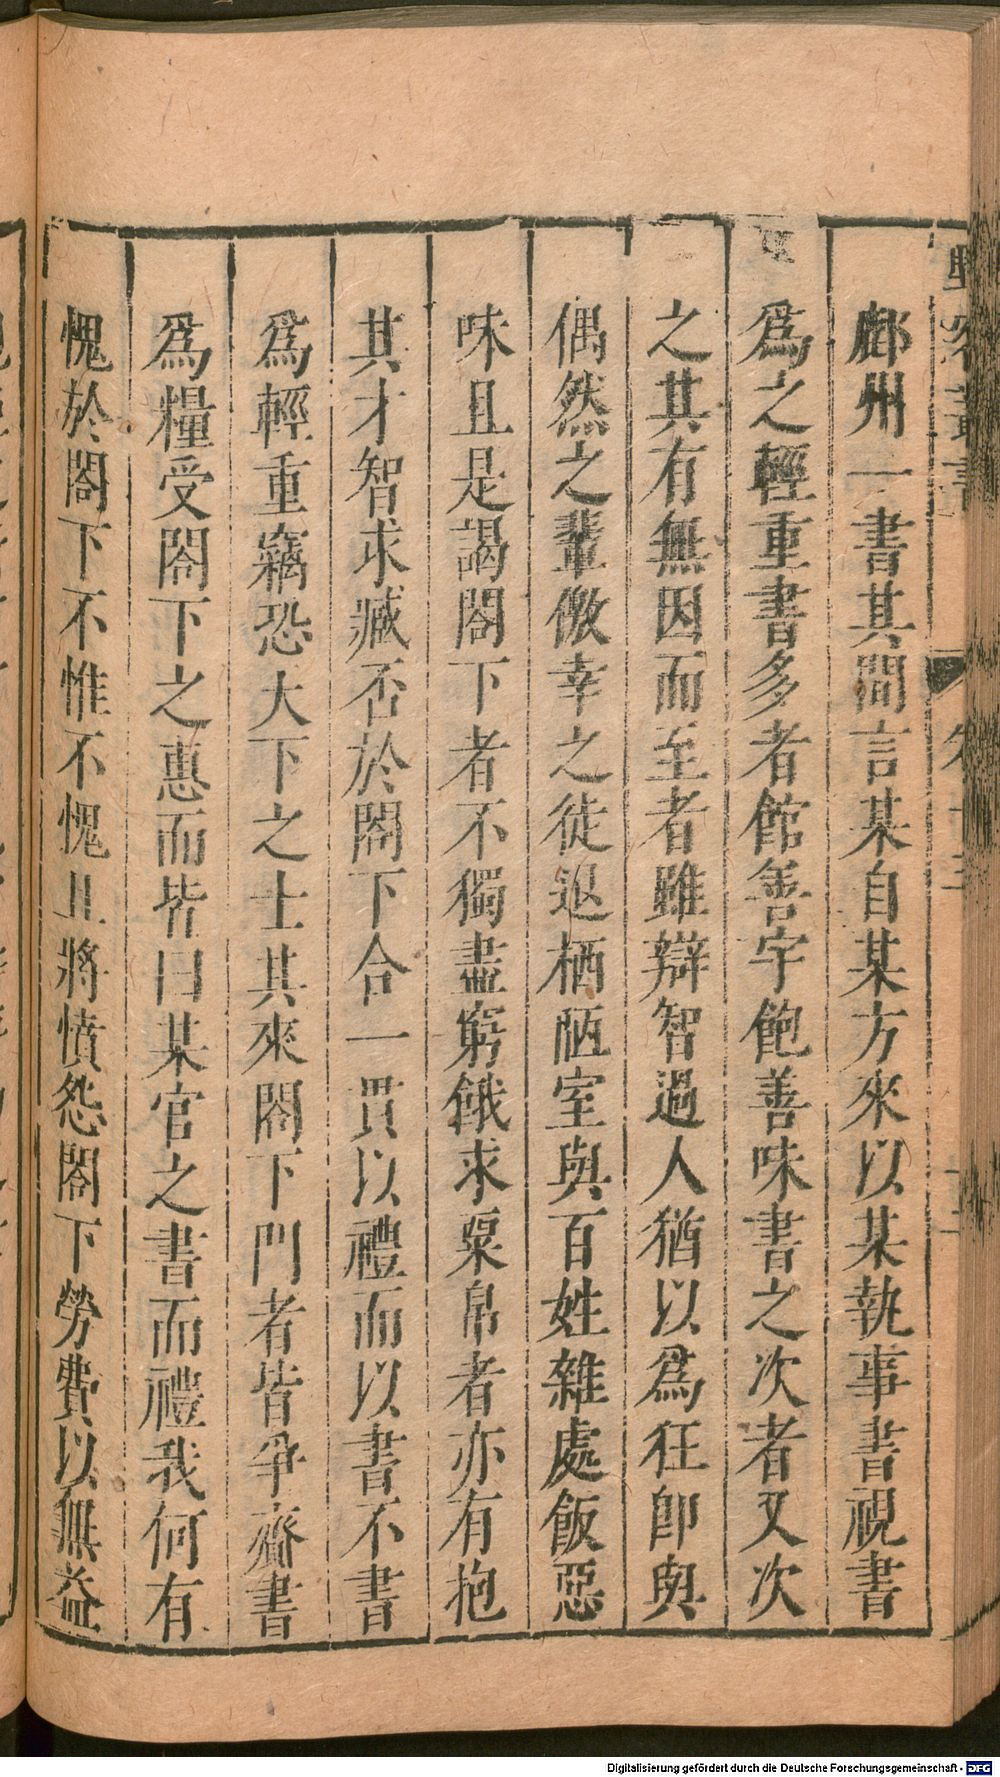 鄜州一書其間言某自某方來以某執事書視書
爲之輕重書多者館善宇飽善味書之次者又次
之其有無因而至者雖辯智過人猶以爲狂卽與
偶然之輩儌幸之徒退栖陋室與百姓雜處飯惡
味且是謁閤下者不獨盡窮餓求粟帛者亦有抱
其才智求臧否於閤下合一貫以禮而以書不書
爲輕重竊恐大下之士其來閤下門者皆爭齎書
爲糧受閤下之惠而皆曰某官之書而禮我何有
愧於閤下不惟不愧且將憤怨閤下勞費以無益
Digitalisierung gefördert durch die Deutsche Forschungsgemeinschaft - DFG